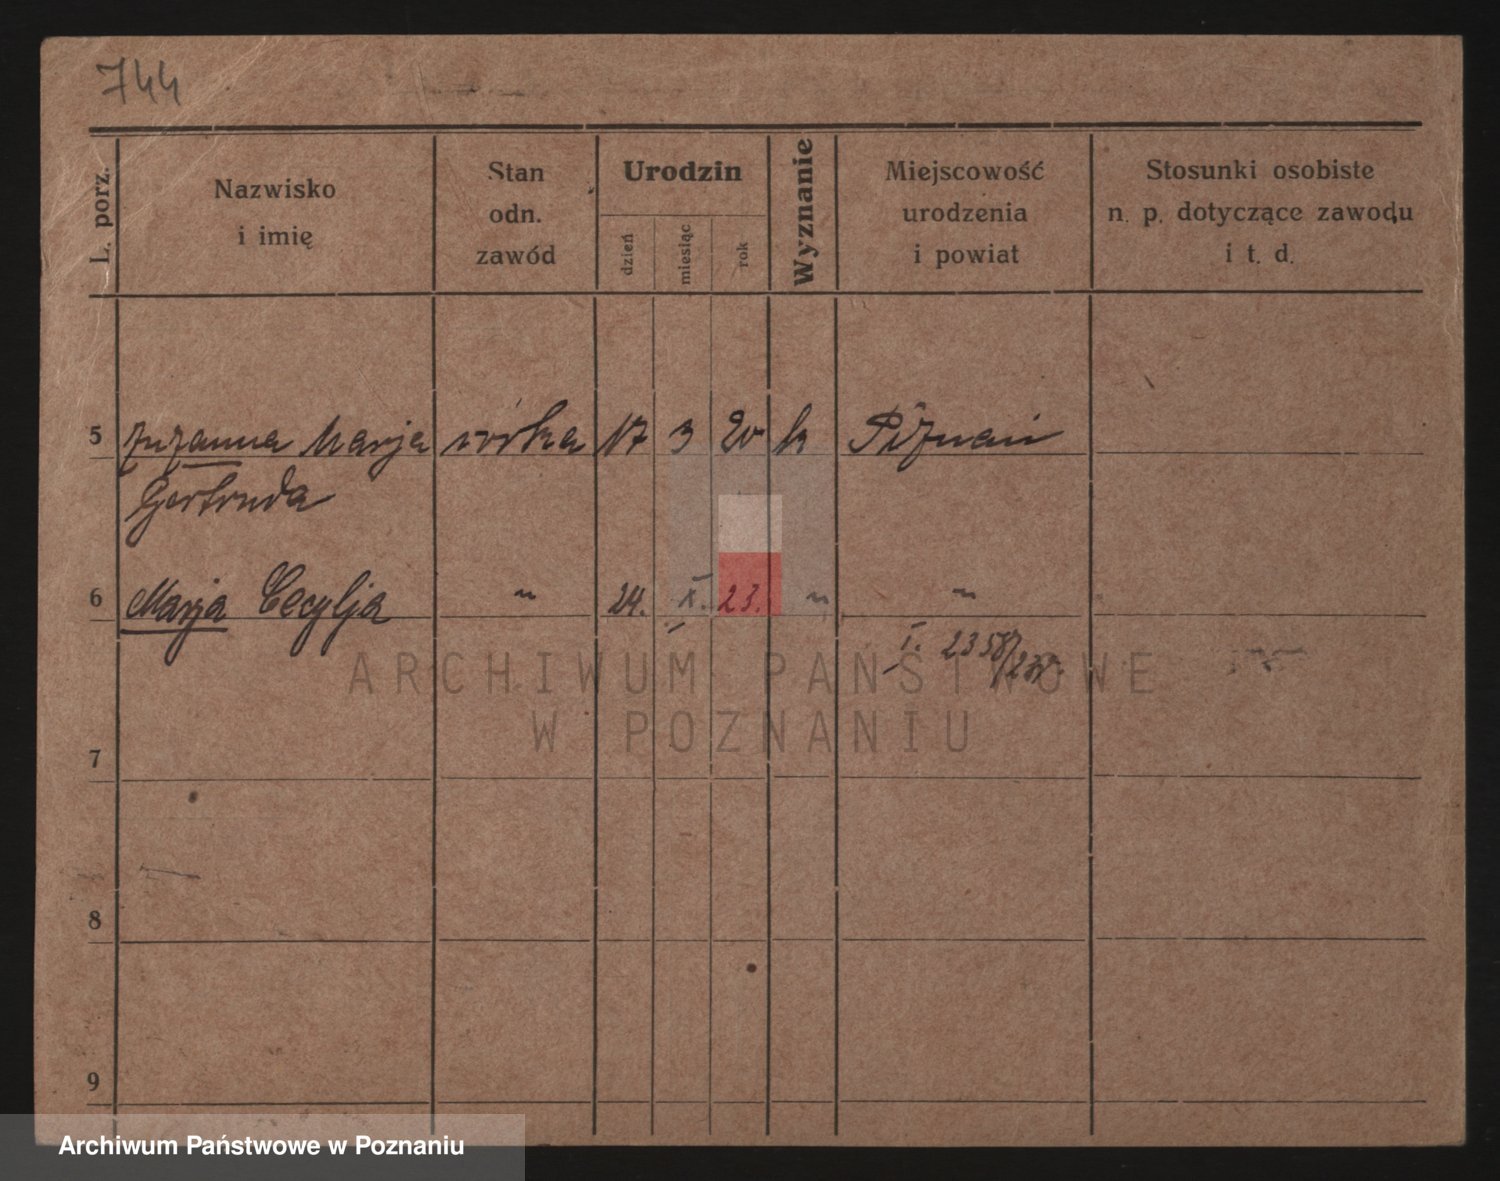 744
L. porz.
Nazwisko
i imię
Stan
odn.
zawód
Urodzin
dzień
miesiąc
rok
Wyznanie
Miejscowość
urodzenia
i powiat
Stosunki osobiste
n. p. dotyczące zawodu
i t. d.
5 Zuzanna Marja córka 17 3 20 k Poznań
Gertruda
6 Marja Cecylja " 24. X. 23. " "
I. 2358/
ARCHIWUM PAŃSTWOWE
W POZNANIU
7
8
9
Archiwum Państwowe w Poznaniu